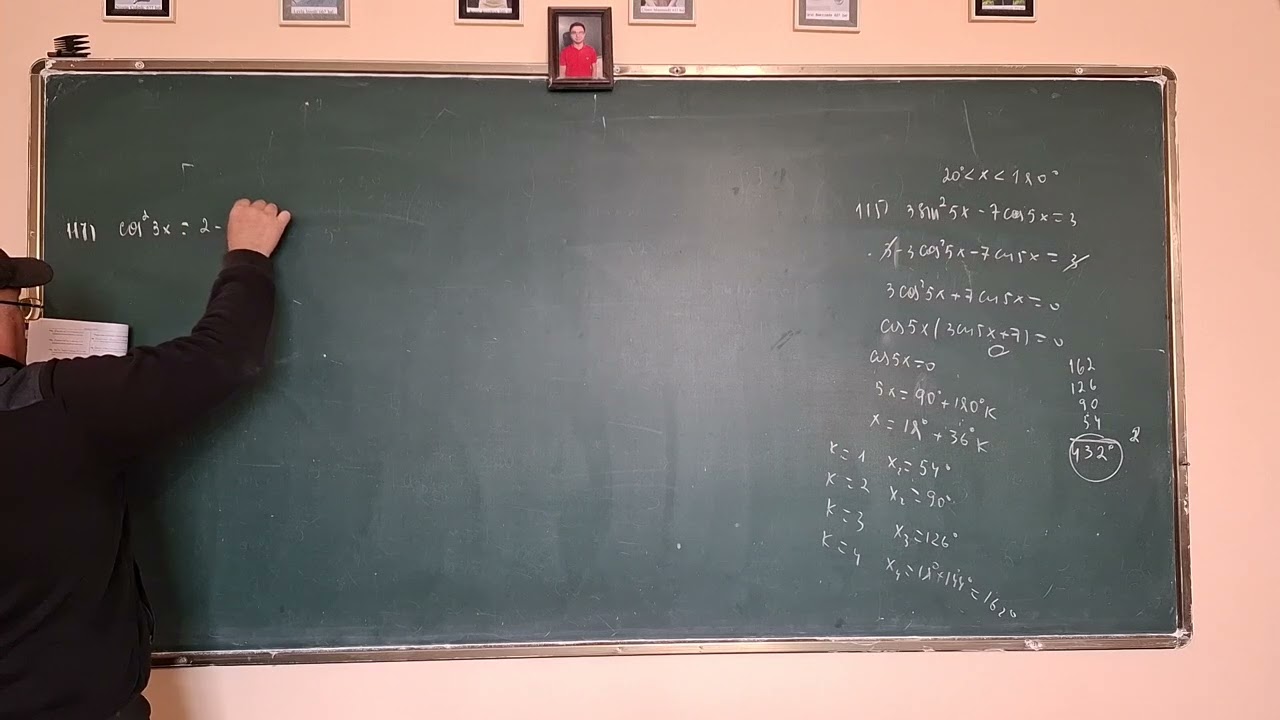 117) cos²3x = 2 -
20° < x < 180°
115) 3sin²5x - 7cos5x = 3
3 - 3cos²5x - 7cos5x = 3
3cos²5x + 7cos5x = 0
cos5x(3cos5x + 7) = 0
cos5x = 0
5x = 90° + 180°K
x = 18° + 36°K
K = 1 x₁ = 54°
K = 2 x₂ = 90°
K = 3 x₃ = 126°
K = 4 x₄ = 18° + 144° = 162°
162
126
90
54
432°
2